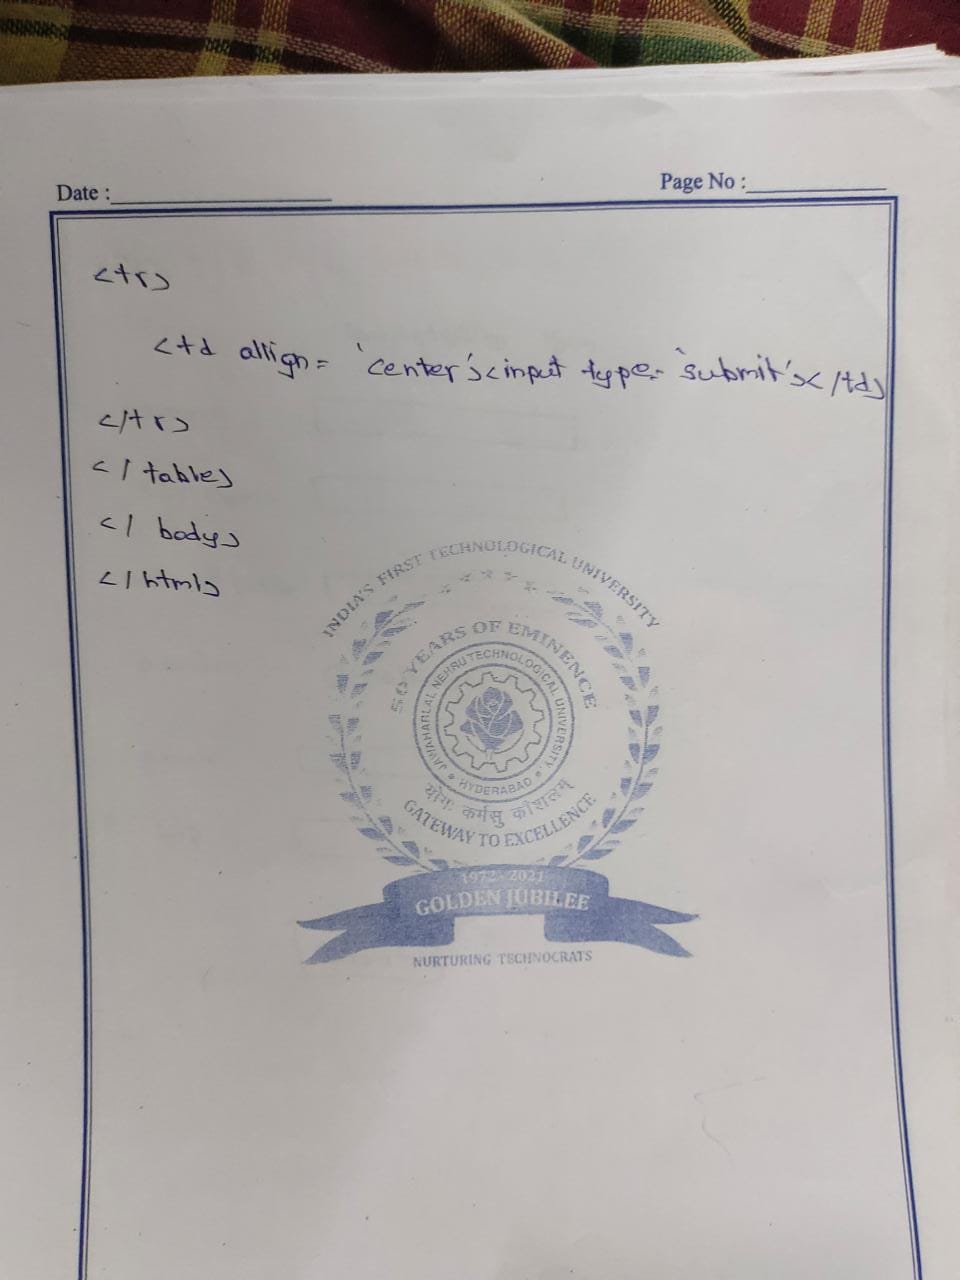 Date : Page No :
<tr>
<td allign= 'center'><input type= 'submit'></td>
</tr>
</table>
</body>
</html>
INDIA'S FIRST TECHNOLOGICAL UNIVERSITY
50 YEARS OF EMINENCE
JAWAHARLAL NEHRU TECHNOLOGICAL UNIVERSITY
* HYDERABAD *
योगः कर्मसु कौशलम्
GATEWAY TO EXCELLENCE
1972-2021
GOLDEN JUBILEE
NURTURING TECHNOCRATS